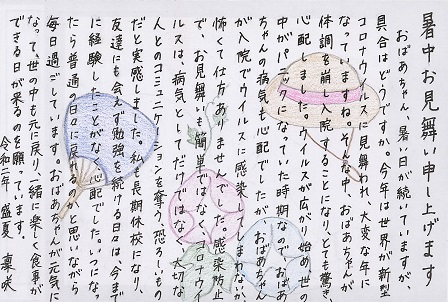 暑中お見舞い申し上げます
おばあちゃん、暑い日が続いていますが、
具合はどうですか。今年は世界が新型
コロナウイルスに見舞われ、大変な年に
なっていますね。そんな中、おばあちゃんが
体調を崩し入院することになり、とても驚き、
心配しました。ウイルスが広がり始め、世の
中がパニックになっていた時期なので、おばあ
ちゃんの病気も心配でしたが、おばあちゃん
が入院でウイルスに感染しまわないか、
怖くて仕方ありませんでした。感染防止
で、お見舞いも簡単ではなく、コロナウイ
ルスは、病気としてだけではなく、大切な
人とのコミュニケーションを奪う、恐ろしいもの
だと実感しました。私も長期休校になり、
友達にも会えず勉強を続ける日々は、今まで
に経験したことがなく心配でした。いつになっ
たら普通の日々に戻れるのかと思いながら
毎日過ごしています。おばあちゃんが元気に
なって、世の中も元に戻り、一緒に楽しく食事が
できる日が来るのを願っています。
令和二年 盛夏